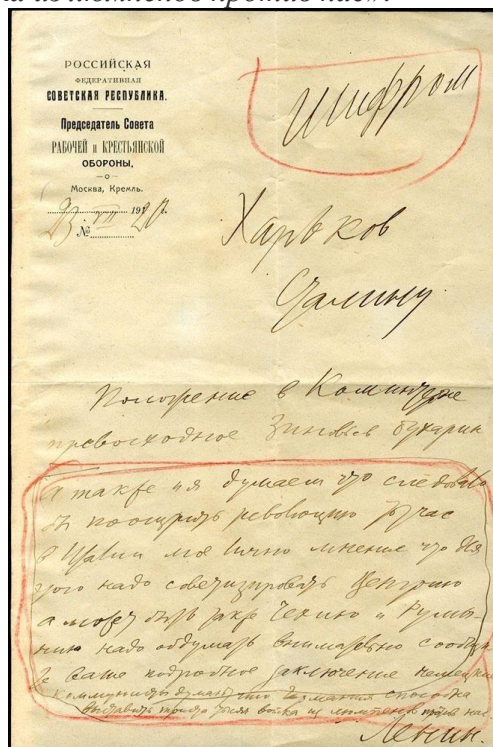 из люмпенов против нас".
РОССИЙСКАЯ
ФЕДЕРАТИВНАЯ
СОВЕТСКАЯ РЕСПУБЛИКА.
Председатель Совета
РАБОЧЕЙ и КРЕСТЬЯНСКОЙ
ОБОРОНЫ,
Москва, Кремль.
23 VII 1920.
№
Шифром
Харьков
Сталину
Положение в Коминтерне
превосходное Зиновьев Бухарин
а также и я думаем что следовало
бы поощрять революцию тотчас
в Италии мое личное мнение что для
этого надо советизировать Венгрию
а может быть также Чехию и Румы-
нию надо обдумать внимательно сообщи-
те ваше подробное заключение немецкие
коммунисты думают что Германия способна
выставить триста тысяч войска из люмпенов против нас
Ленин.